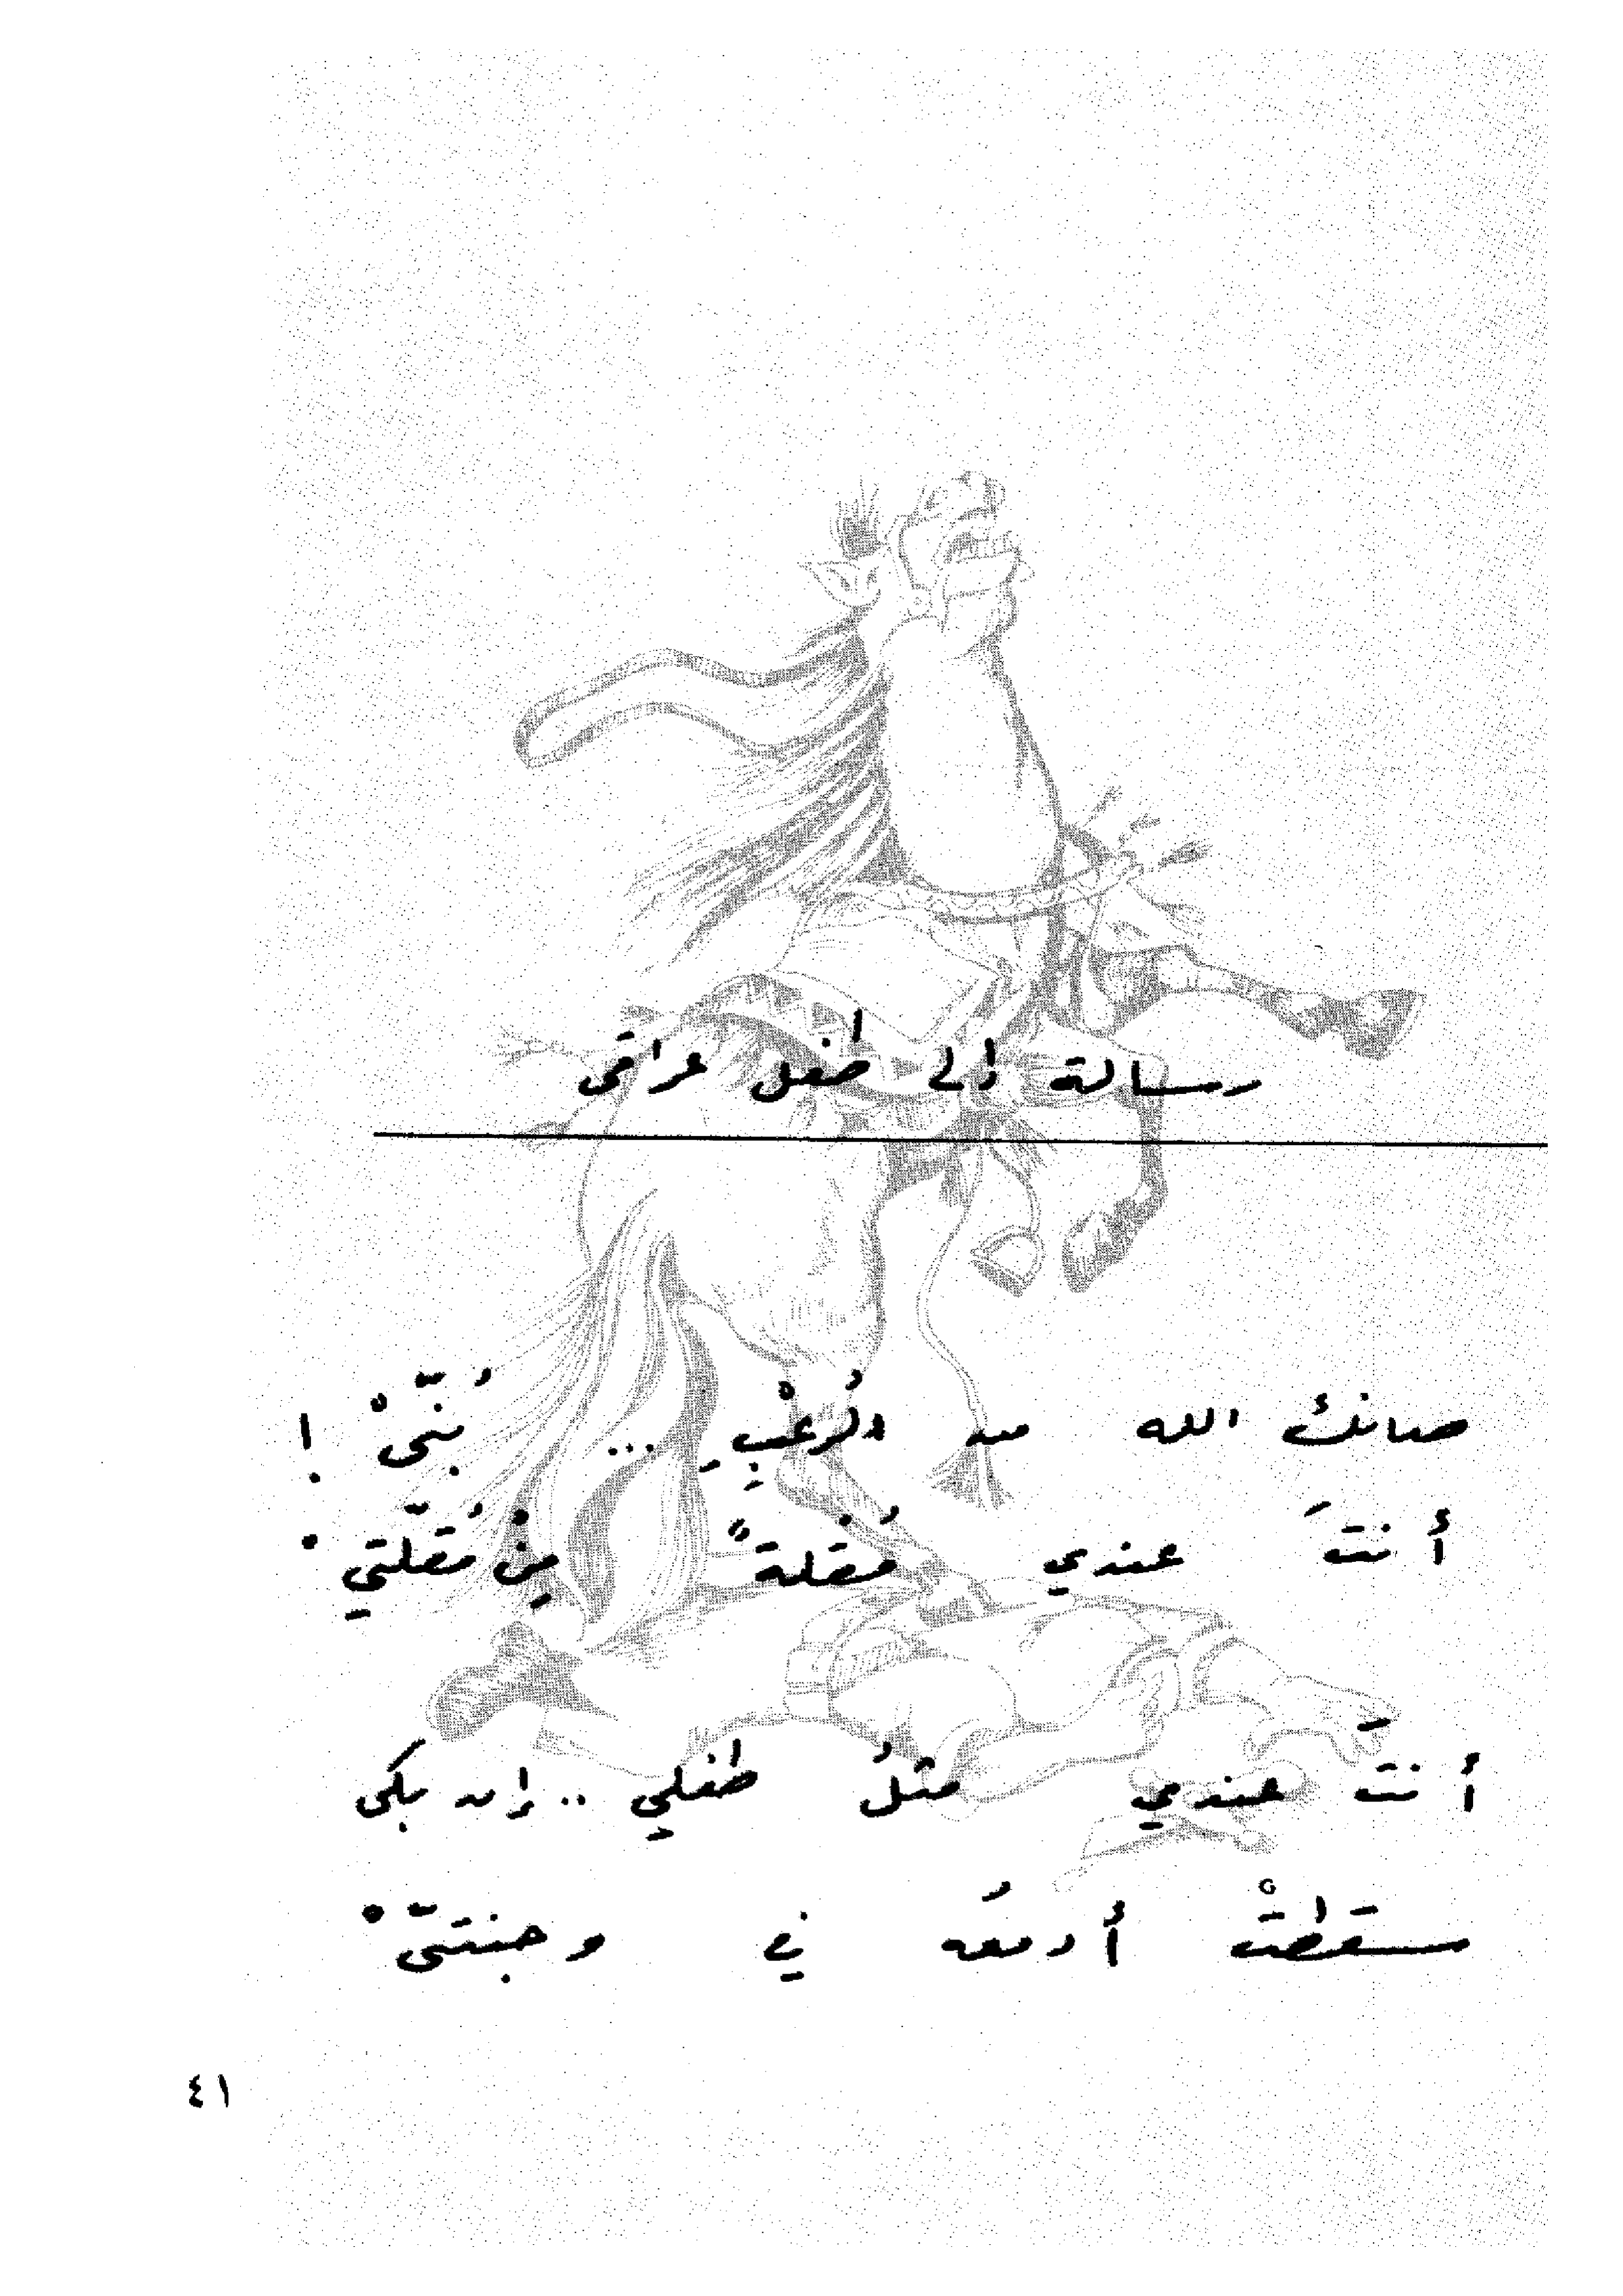 رسالة إلى طفل عراقى
صانكَ الله من الرُعْبِ ... بُنَّىْ !
أنتَ عندي مُقلةً مِنْ مُقلّتيْ
أنتَ عندي مثلُ طفلي .. إن بكى
سقطتْ أدمعُه في وجنتىّْ
٤١